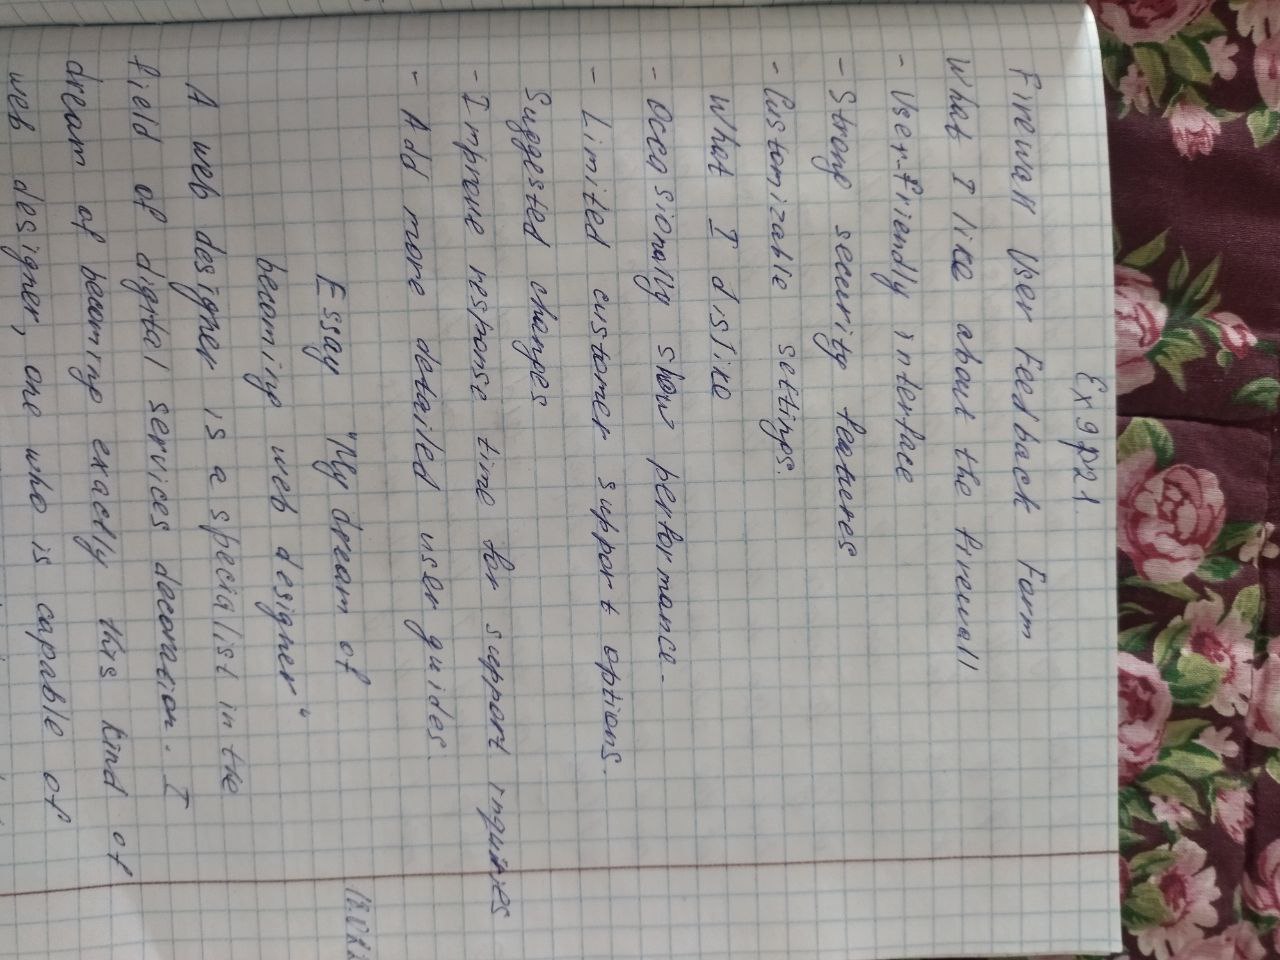 Ex 9 p 21.
Firewall User Feedback Form
What I like about the firewall
- User-friendly interface
- Strong security features
- Customizable settings.
What I dislike
- Occasionally show performance.
- Limited customer support options.
Suggested changes
- Improve response time for support inquiries
- Add more detailed user guides.
18.02
Essay "My dream of
becoming web designer"
A web designer is a specialist in the
field of digital services decoration. I
dream of becoming exactly this kind of
web designer, one who is capable of